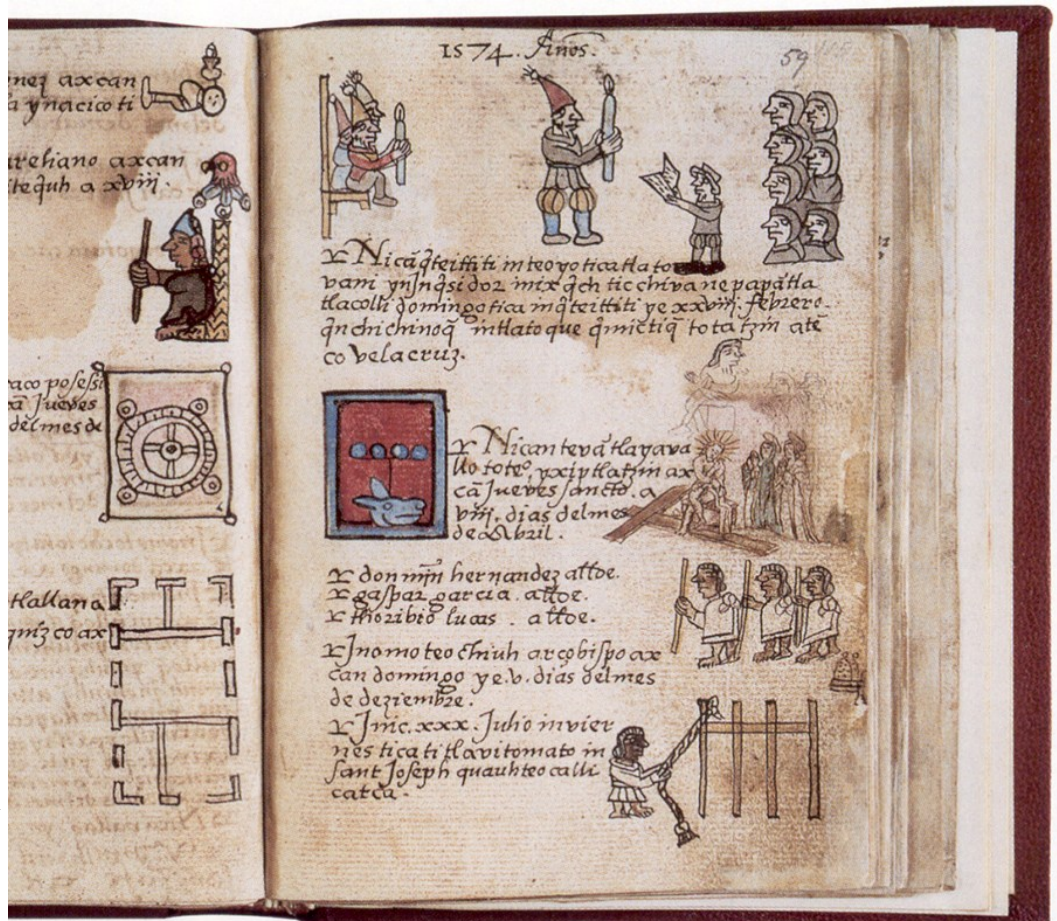 nez axcan
a ynacico ti
areliano axcan
a xviij.
posessi
Jueves
del mes de
tlallana
quiz co ax
1574. Años.
59
Nicā q̄teittiti in teoyotica tlato
vani ynInq̄sidor mixq̄ch tic chiva nepapātla
tlacolli domingotica inq̄teittiti ye xxviij. febrero.
q̄nchichinoq̄ intlatoque q̄mictiq̄ totatzin atē
co velacruz.
Nican tevā tlayava
llo toteº. yxiptlatzin ax
cā Jueves sancto. a
viij. dias del mes
de Abril.
don mīn hernandez allde.
gaspar garcia. allde.
thoribio lucas. allde.
Inomoteochiuh arçobispo ax
can domingo ye .v. dias del mes
de deziembre.
Inic .xxx. Julio in vier
nes tica titlavitomato in
sant Joseph quauhteocalli
catca.